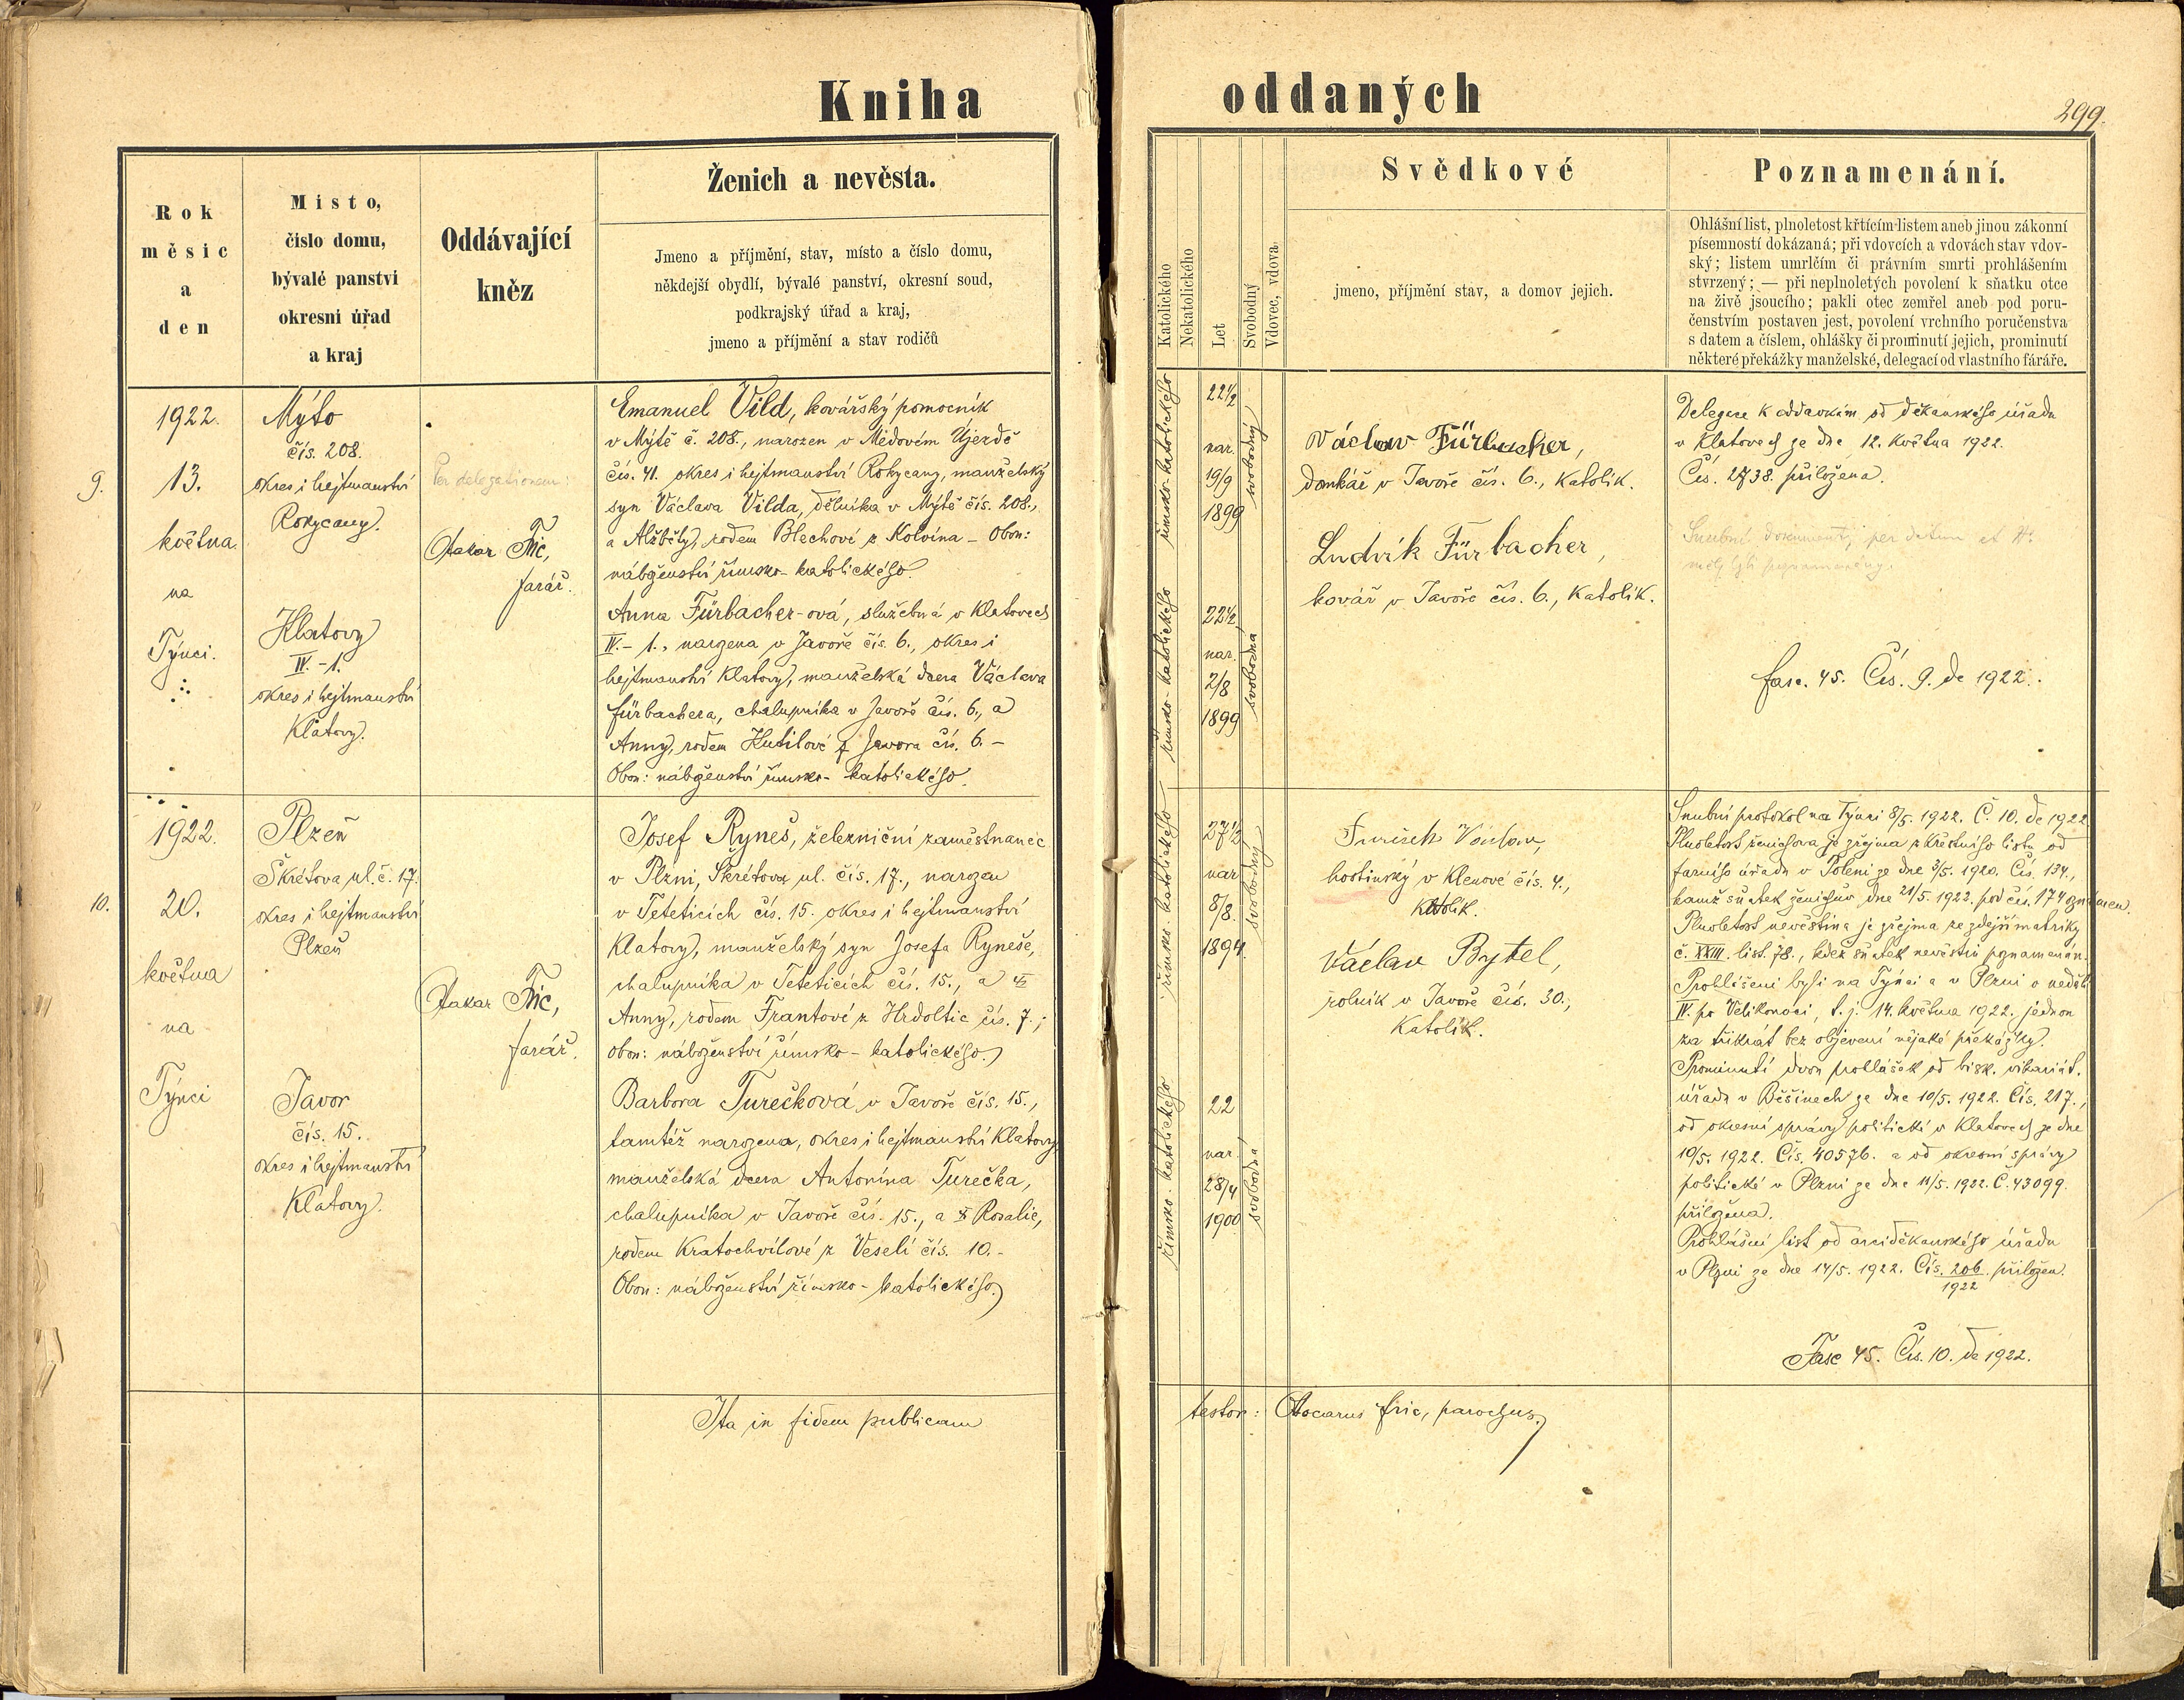 Kniha oddaných
299.
Rok
měsíc
a
den
Místo,
číslo domu,
bývalé panství
okresní úřad
a kraj
Oddávající
kněz
Ženich a nevěsta.
Jmeno a příjmění, stav, místo a číslo domu,
někdejší obydlí, bývalé panství, okresní soud,
podkrajský úřad a kraj,
jmeno a příjmění a stav rodičů
Katolického
Nekatolického
Let
Svobodný
Vdovec, vdova.
Svědkové
jmeno, příjmění stav, a domov jejich.
Poznamenání.
Ohlášní list, plnoletost křtícím listem aneb jinou zákonní
písemností dokázaná; při vdovcích a vdovách stav vdov-
ský; listem umrlčím či právním smrti prohlášením
stvrzený; — při neplnoletých povolení k sňatku otce
na živě jsoucího; pakli otec zemřel aneb pod poru-
čenstvím postaven jest, povolení vrchního poručenstva
s datem a číslem, ohlášky či prominutí jejich, prominutí
některé překážky manželské, delegací od vlastního fáráře.
9.
1922.
13.
května
na
Týnci.
Mýto
čís. 208.
okres i hejtmanství
Rokycany.
Klatovy
IV.-1.
okres i hejtmanství
Klatovy.
Per delegationem:
Otakar Fric,
farář.
Emanuel Vild, kovářský pomocník
v Mýtě č. 208., narozen v Medovém Újezdě
čís. 41. okres i hejtmanství Rokycany, manželský
syn Václava Vilda, dělníka v Mýtě čís. 208.,
a Alžběty, rodem Blechové z Kolvína - Obou:
náboženství římsko-katolického.
Anna Fürbacher-ová, služebná v Klatovech
IV.-1., narozena v Javoře čís. 6., okres i
hejtmanství Klatovy, manželská dcera Václava
Fürbachera, chalupníka v Javoře čís. 6., a
Anny, rodem Kutilové z Javora čís. 6. -
Obou: náboženství římsko-katolického.
římsko-katolického
22 1/2
nar.
19/9
1899
svobodný
římsko-katolického
22 1/2
nar.
2/8
1899
svobodná
Václav Fürbacher,
domkář v Javoře čís. 6., katolík.
Ludvík Fürbacher,
kovář v Javoře čís. 6., katolík.
Delegace k oddavkám od děkanského úřadu
v Klatovech ze dne 12. května 1922.
Čís. 2738. přiložena.
Snubní dokumenty
fasc. 45. Čís. 9. de 1922.
10.
1922.
20.
května
na
Týnci
Plzeň
Škrétova ul. č. 17.
okres i hejtmanství
Plzeň
Javor
čís. 15.
okres i hejtmanství
Klatovy.
Otakar Fric,
farář.
Josef Ryneš, železniční zaměstnanec
v Plzni, Škrétova ul. čís. 17., narozen
v Teteticích čís. 15. okres i hejtmanství
Klatovy, manželský syn Josefa Ryneše,
chalupníka v Teteticích čís. 15., a
Anny, rodem Frantové z Hrdoltic čís. 7.;
obou: náboženství římsko-katolického.
Barbora Turečková v Javoře čís. 15.,
tamtéž narozena, okres i hejtmanství Klatovy,
manželská dcera Antonína Turečka,
chalupníka v Javoře čís. 15., a Rosalie,
rodem Kratochvílové z Veselí čís. 10.-
Obou: náboženství římsko-katolického.
římsko-katolického
27 1/2
nar
8/8.
1894.
svobodný
římsko-katolického
22
nar.
28/4
1900
svobodná
hostinský v Klenové čís. 4.,
katolík.
Václav Bytel,
rolník v Javoře čís. 30.,
Katolík.
Snubní protokol na Týnci 8/5. 1922. Č. 10. de 1922
Plnoletost ženichova je zřejma z křestního listu od
farního úřadu v Poleni ze dne 3/5. 1920. Čís. 134.,
kamž sňatek ženichův dne 21/5. 1922. pod čís. 174 oznámen.
Plnoletost nevěstina je zřejma ze zdejší matriky
č. XXIII. list. 78., kdež sňatek nevěstin poznamenán.
Prohlášeni byli na Týnci a v Plzni o neděli
IV. po Velikonoci, t. j. 14. května 1922. jednou
za třikrát bez objevení nějaké překážky.
Prominutí dvou prohlášek od bisk. vikariát.
úřadu v Běšinech ze dne 10/5. 1922. Čís. 217.,
od okresní správy politické v Klatovech ze dne
10/5. 1922. Čís. 40576. a od okresní správy
politické v Plzni ze dne 11/5. 1922. Č. 43099.
přiložena.
Prohlášní list od arciděkanského úřadu
v Plzni ze dne 14/5. 1922. Čís. 206/1922 přiložen.
Fasc 45. Čís. 10. de 1922.
Ita in fidem publicam
testor: Otocarus Fric, parochus.